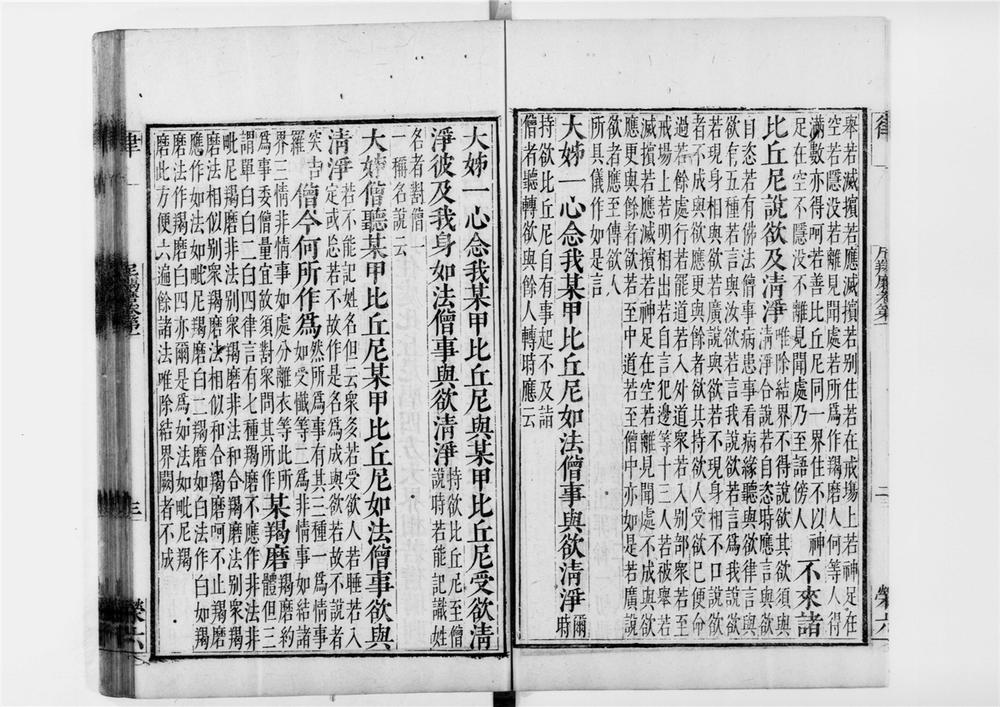 律
尼羯磨卷第一
二
榮六
舉若滅擯若應滅擯若別住若在戒場上若神足在
空若隱没若離見聞處若所爲作羯磨人何等人得
滿數亦得呵若善比丘尼同一界住不以神
足在空不隱没不離見聞處乃至語傍人
不來諸
比丘尼說欲及清淨
唯除結界不得說欲其欲須與
清淨合說若自恣時應言與欲
自恣若有佛法僧事病患事看病緣聽與欲律言與
欲有五種若言與汝欲若言我說欲若言爲我說欲
若現身相與欲若廣說與欲若不現身相不口說欲
者不成與欲應更與餘者欲其持欲人受欲已便命
過若餘處行若罷道若入外道衆若入別部衆若至
戒場上若明相出若自言犯邊等十三人若被舉若
滅擯若應滅擯若神足在空若離見聞處不成與欲
應更與餘者欲若至中道若至僧中亦如是若廣說
欲者應至傳欲人
所具儀作如是言
大姊一心念我某甲比丘尼如法僧事與欲清淨
爾時
持欲比丘尼自有事起不及詣
僧者聽轉欲與餘人轉時應云
大姊一心念我某甲比丘尼與某甲比丘尼受欲清
淨彼及我身如法僧事與欲清淨
持欲比丘尼至僧
說時若能記識姓
名者對僧一
一稱名說云
大姊僧聽某甲比丘尼某甲比丘尼如法僧事欲與
清淨
若不能記姓名但云衆多若受欲人若睡若入
定或忘若不故作是名爲成與欲若故不說者
突吉
羅
僧今何所作爲
然所爲事有其三種一爲情事
如受懺等二爲非情事如結諸
界三情非情事如處分離衣等此所
爲事委僧量宜故須對衆問其所作
某羯磨
羯磨約
體但三
謂單白白二白四律言有七種羯磨不應作非法非
毗尼羯磨非法別衆羯磨非法和合羯磨法別衆羯
磨法相似別衆羯磨法相似和合羯磨呵不止羯磨
應作如法如毗尼羯磨白二羯磨如白法作白如羯
磨法作羯磨白四亦爾是爲如法如毗尼羯
磨此方便六遍餘諸法唯除結界闕者不成
律
尼羯磨卷第一
三
榮六